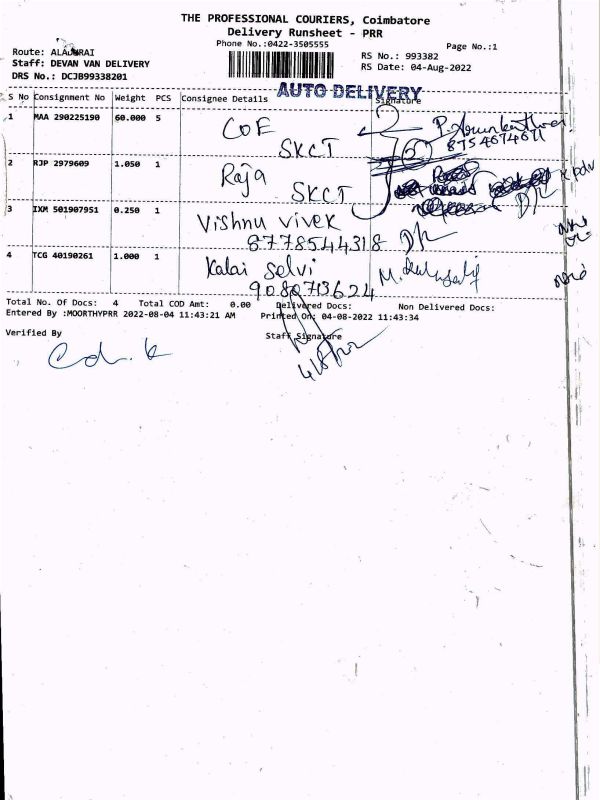 THE PROFESSIONAL COURIERS, Coimbatore
Delivery Runsheet - PRR
Phone No.:0422-3505555
Page No.:1
Route:
Staff: DEVAN VAN DELIVERY
DRS No.: DCJB99338201
RS No.: 993382
RS Date: 04-Aug-2022
AUTO DELIVERY
S No Consignment No Weight PCS Consignee Details Signature
1 MAA 290225190 60.000 5 COE
SKCT
8754674671
2 RJP 2979609 1.050 1 Raja
SKCT
3 IXM 501907951 0.250 1 Vishnu vivek
8778544318
4 TCG 40190261 1.000 1 Kalai Selvi
9080713624
Total No. Of Docs: 4 Total COD Amt: 0.00 Delivered Docs: Non Delivered Docs:
Entered By :MOORTHYPRR 2022-08-04 11:43:21 AM Printed On: 04-08-2022 11:43:34
Verified By
Staff Signature